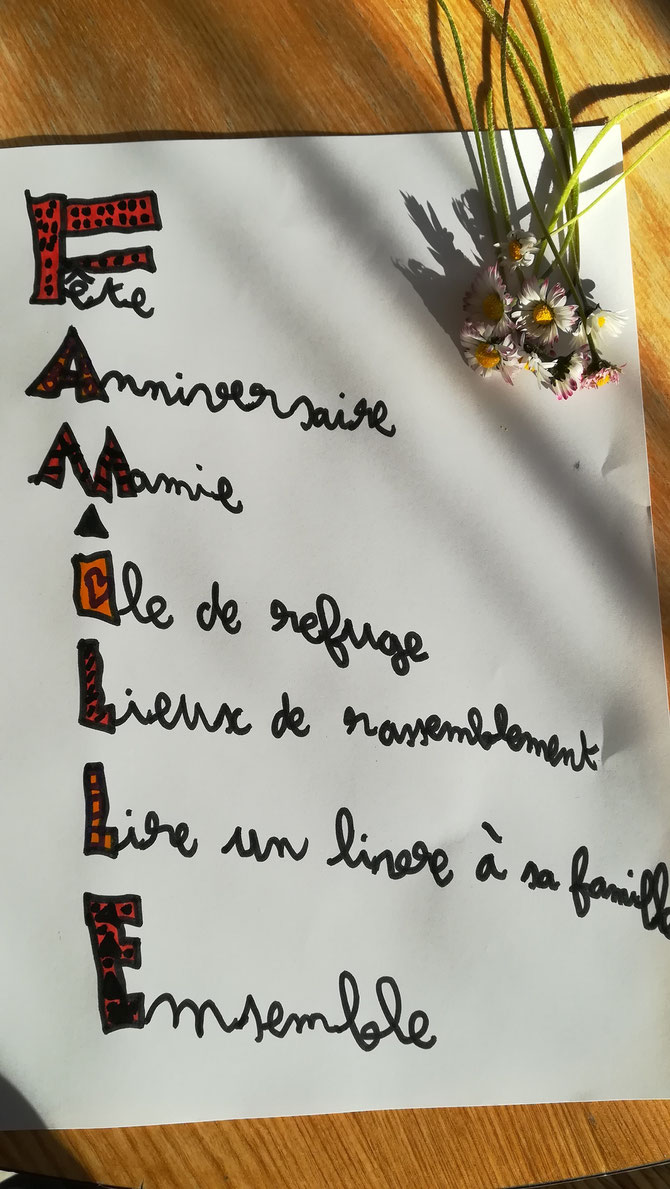 Fête
Anniversaire
Mamie
Île de refuge
Lieux de rassemblement
Lire un livre à sa famille
Ensemble